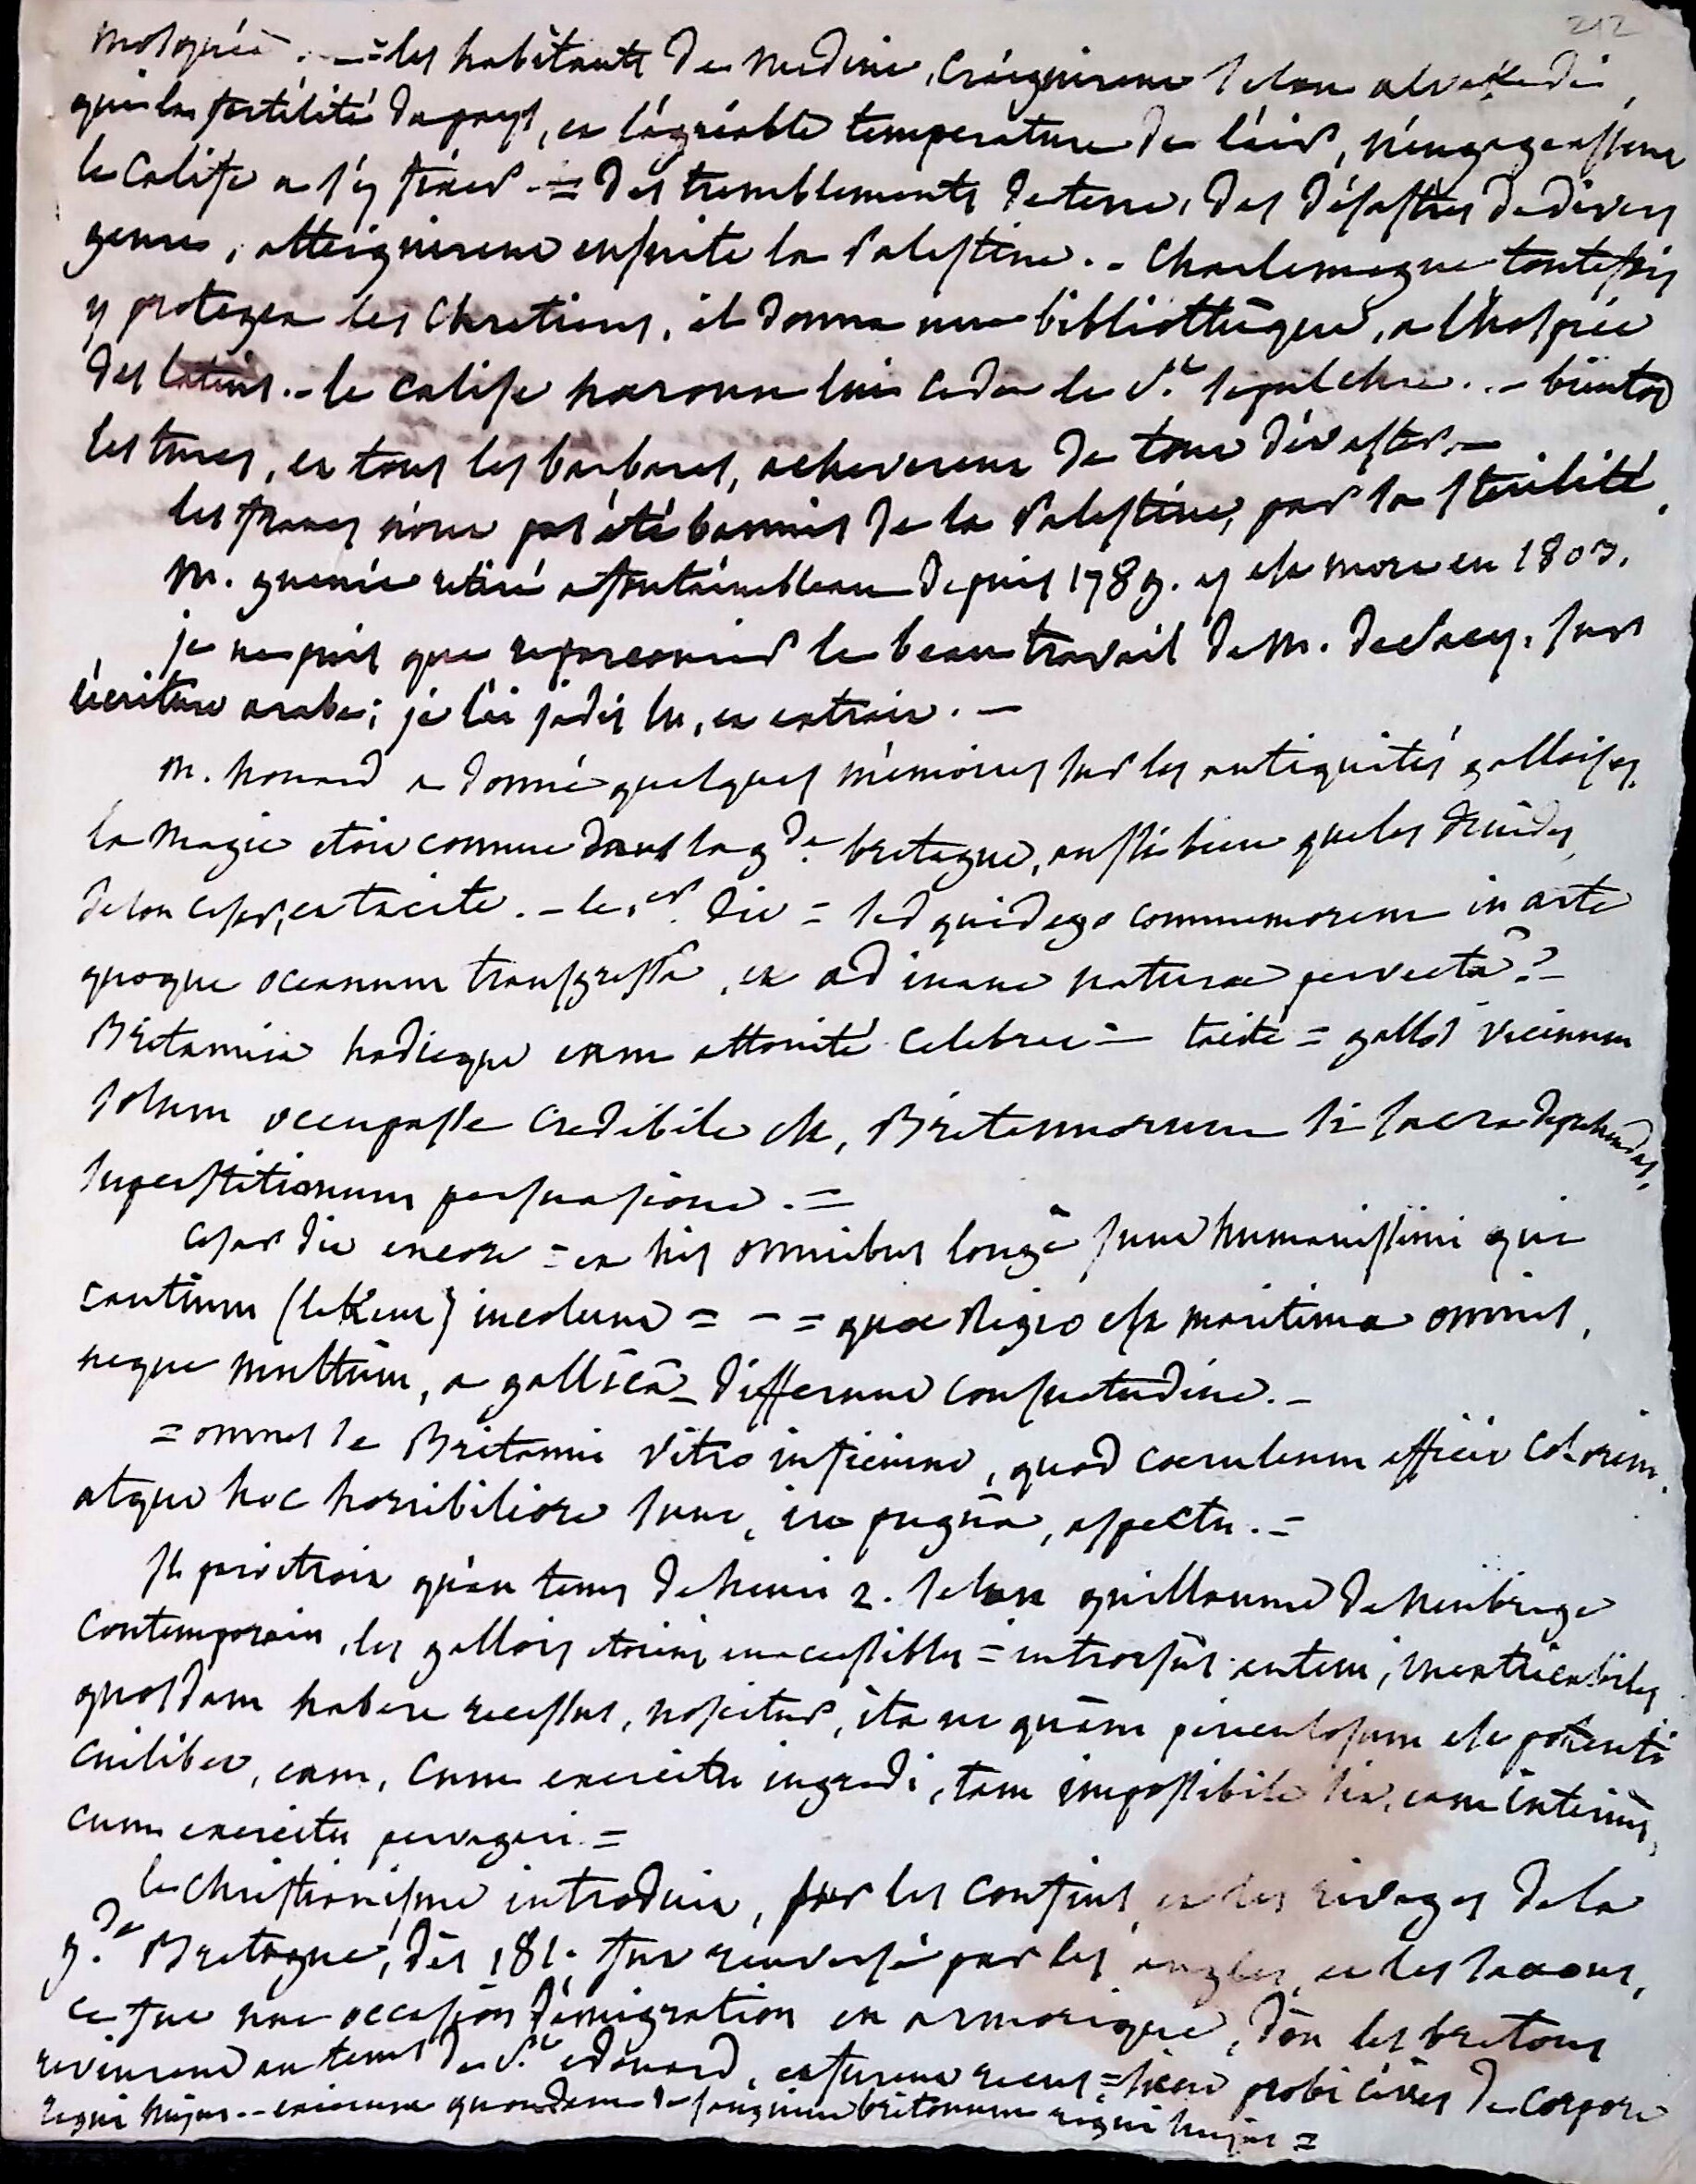 212
mosquée. — = les habitants de Medine, craignirent selon alvakedi,
que la fertilité du pays, et l'agréable temperature de l'air, n'engageassent
le Calife a s'y fixer. = des tremblements de terre, des désastres de divers
genres, atteignirent ensuite la Palestine. - Charlemagne toutefois
y protegea les Chretiens, il donna une bibliothèque, a l'hospice
des latins. - le calife haroun lui ceda le St. sepulchre. . - bientot
les turcs, et tous les barbares, acheverent de tout dévaster. —
les francs n'ont pas été bannis de la Palestine, par sa sterilité.
M. guenée retiré a fontainebleau depuis 1789. y est mort en 1803.
je ne puis que reparcourir le beau travail de M. de Sacy. sur
l'écriture arabe; je l'ai jadis lu, et extrait. —
M. houard a donné quelques mémoires sur les antiquités galloises.
la magie etoit connue dans la gde. bretagne, aussi bien que les druides,
selon cesar, et tacite. - le 1er. dit = sed quid ego commemorem in arte
quoque oceanum transgressa, et ad inane naturae pervecta? -
Britannia hodieque eam attonité celebrat = tacite = gallos vicinum
solum occupasse credibile est, Britannorum si sacra deprehendas,
superstitionum persuasione. =
cesar dit encore = ex his omnibus longè sunt humanissimi qui
cantium (le Kent) incolunt = - = quae Regio est maritima omnis,
neque multùm, a gallicâ differunt consuetudine. -
= omnes se Britanni vitro inficiunt, quod caeruleum efficit colorem.
atque hoc horribiliore sunt, in pugnâ, aspectu. =
Il paroitroit qu'au tems de henri 2. selon guillaume de neubrige
contemporain, les gallois etoient inaccessibles = introrsùs autem, inextricabiles
quosdam habere recessus, noscitur, ita ut quàm periculosum est potenti
cuilibet, eam, cum exercitu ingredi, tam impossibile sit, eam interiùs,
cum exercitu pervagari. =
le christianisme introduit, sur les confins, et les rivages de la
gde. Bretagne, dès 181. fut renversé par les angles, et les saxons,
ce fut une occasion d'émigration en armorique, d'où les bretons
revinrent au tems de St. edouard, et furent recus = sicut probi cives de corpore
regni hujus. - exierunt quondam de sanguine britonum regni hujus =